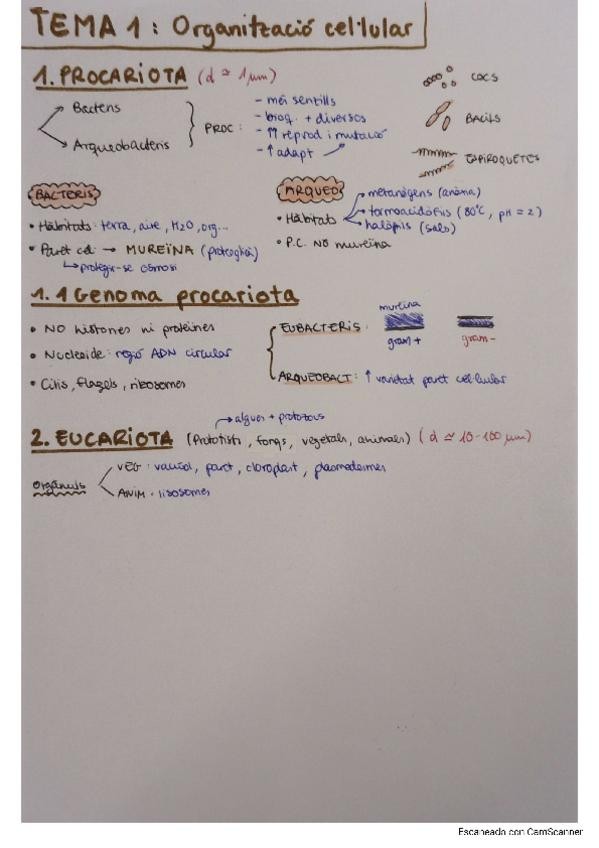 TEMA 1: Organització cel·lular
1. PROCARIOTA (d ≃ 1 μm)
Bacteris
Arqueobacteris
PROC:
- més sentills
- bioq. + diversos
- ↑↑ reprod i mutació
- ↑ adapt
COCS
BACILS
ESPIROQUETES
BACTERIS
• Hàbitats: terra, aire, H2O, org...
• Paret cel → MUREÏNA (peptoglicà)
protegir-se osmosi
ARQUEO
• Hàbitats
metanògens (anòxia)
termoacidòfils (80°C, pH = 2)
halòfils (sals)
• P.C. NO mureïna
1.1 Genoma procariota
• NO histones ni proteïnes
• Nucleoide: regió ADN circular
• Cilis, flagels, ribosomes
EUBACTERIS:
mureïna
gram +
gram -
ARQUEOBACT: ↑ varietat paret cel·lular
→ algues + protozous
2. EUCARIOTA (Protoctists, fongs, vegetals, animals) (d ≃ 10-100 μm)
Orgànuls
VEG: vacúol, paret, cloroplast, plasmodesmes
ANIM: lisosomes
Escaneado con CamScanner